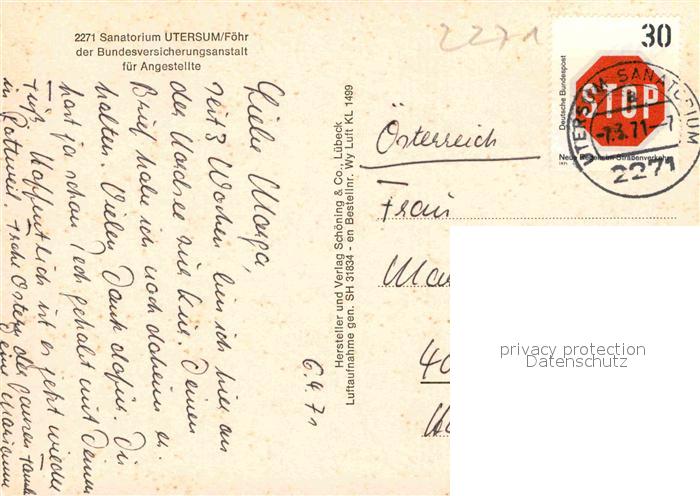 2271 Sanatorium UTERSUM/Föhr
der Bundesversicherungsanstalt
für Angestellte
Liebe Marga,
seit 3 Wochen bin ich hier an
der Nordsee zur Kur. Deinen
Brief habe ich noch daheim er-
halten. Vielen Dank dafür. Du
hast ja schon Pech gehabt mit Deinem
Fuß. Hoffentlich ist es jetzt wieder
Frohe Ostern der ganzen Familie
Deine Marianne
6.4.71
Hersteller und Verlag Schöning & Co., Lübeck
Luftaufnahme gen. SH 31834 - en Bestellnr. Wy Luft KL 1499
2271
Österreich
Frau
Ma
40
30
Deutsche Bundespost
STOP
Neue Regeln im Straßenverkehr
UTERSUM SANATORIUM
a
-7.-7
2271
privacy protection
Datenschutz